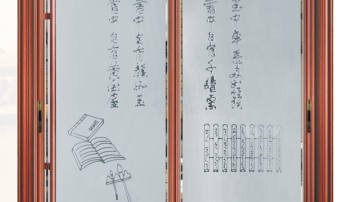 書中車馬多如簇
書中自有千鍾粟
書中自有顏如玉
書中自有黃金屋